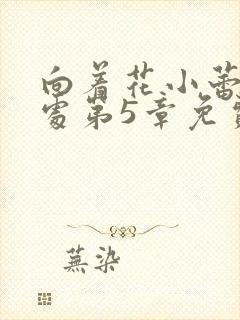 向着花小蕾
处第5章免费
蕪染